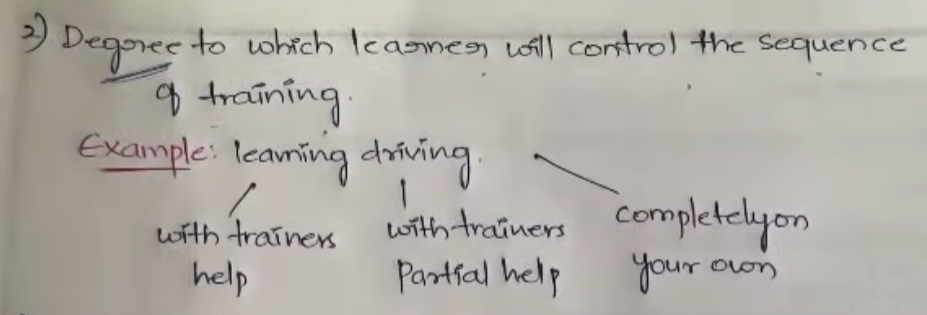 2) Degree to which learner will control the sequence
of training.
Example: learning driving.
with trainers with trainers completely on
help Partial help your own